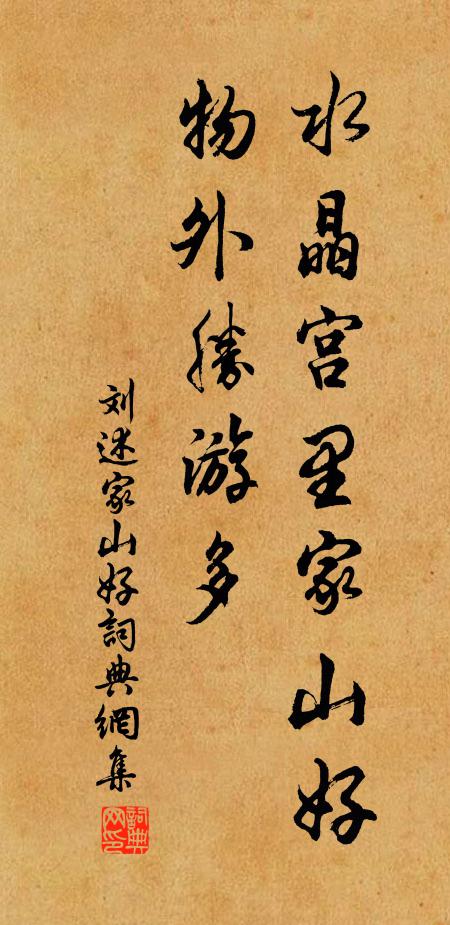 水晶宫里家山好
物外勝游多
刘述家山好詞典網集
詞典网印